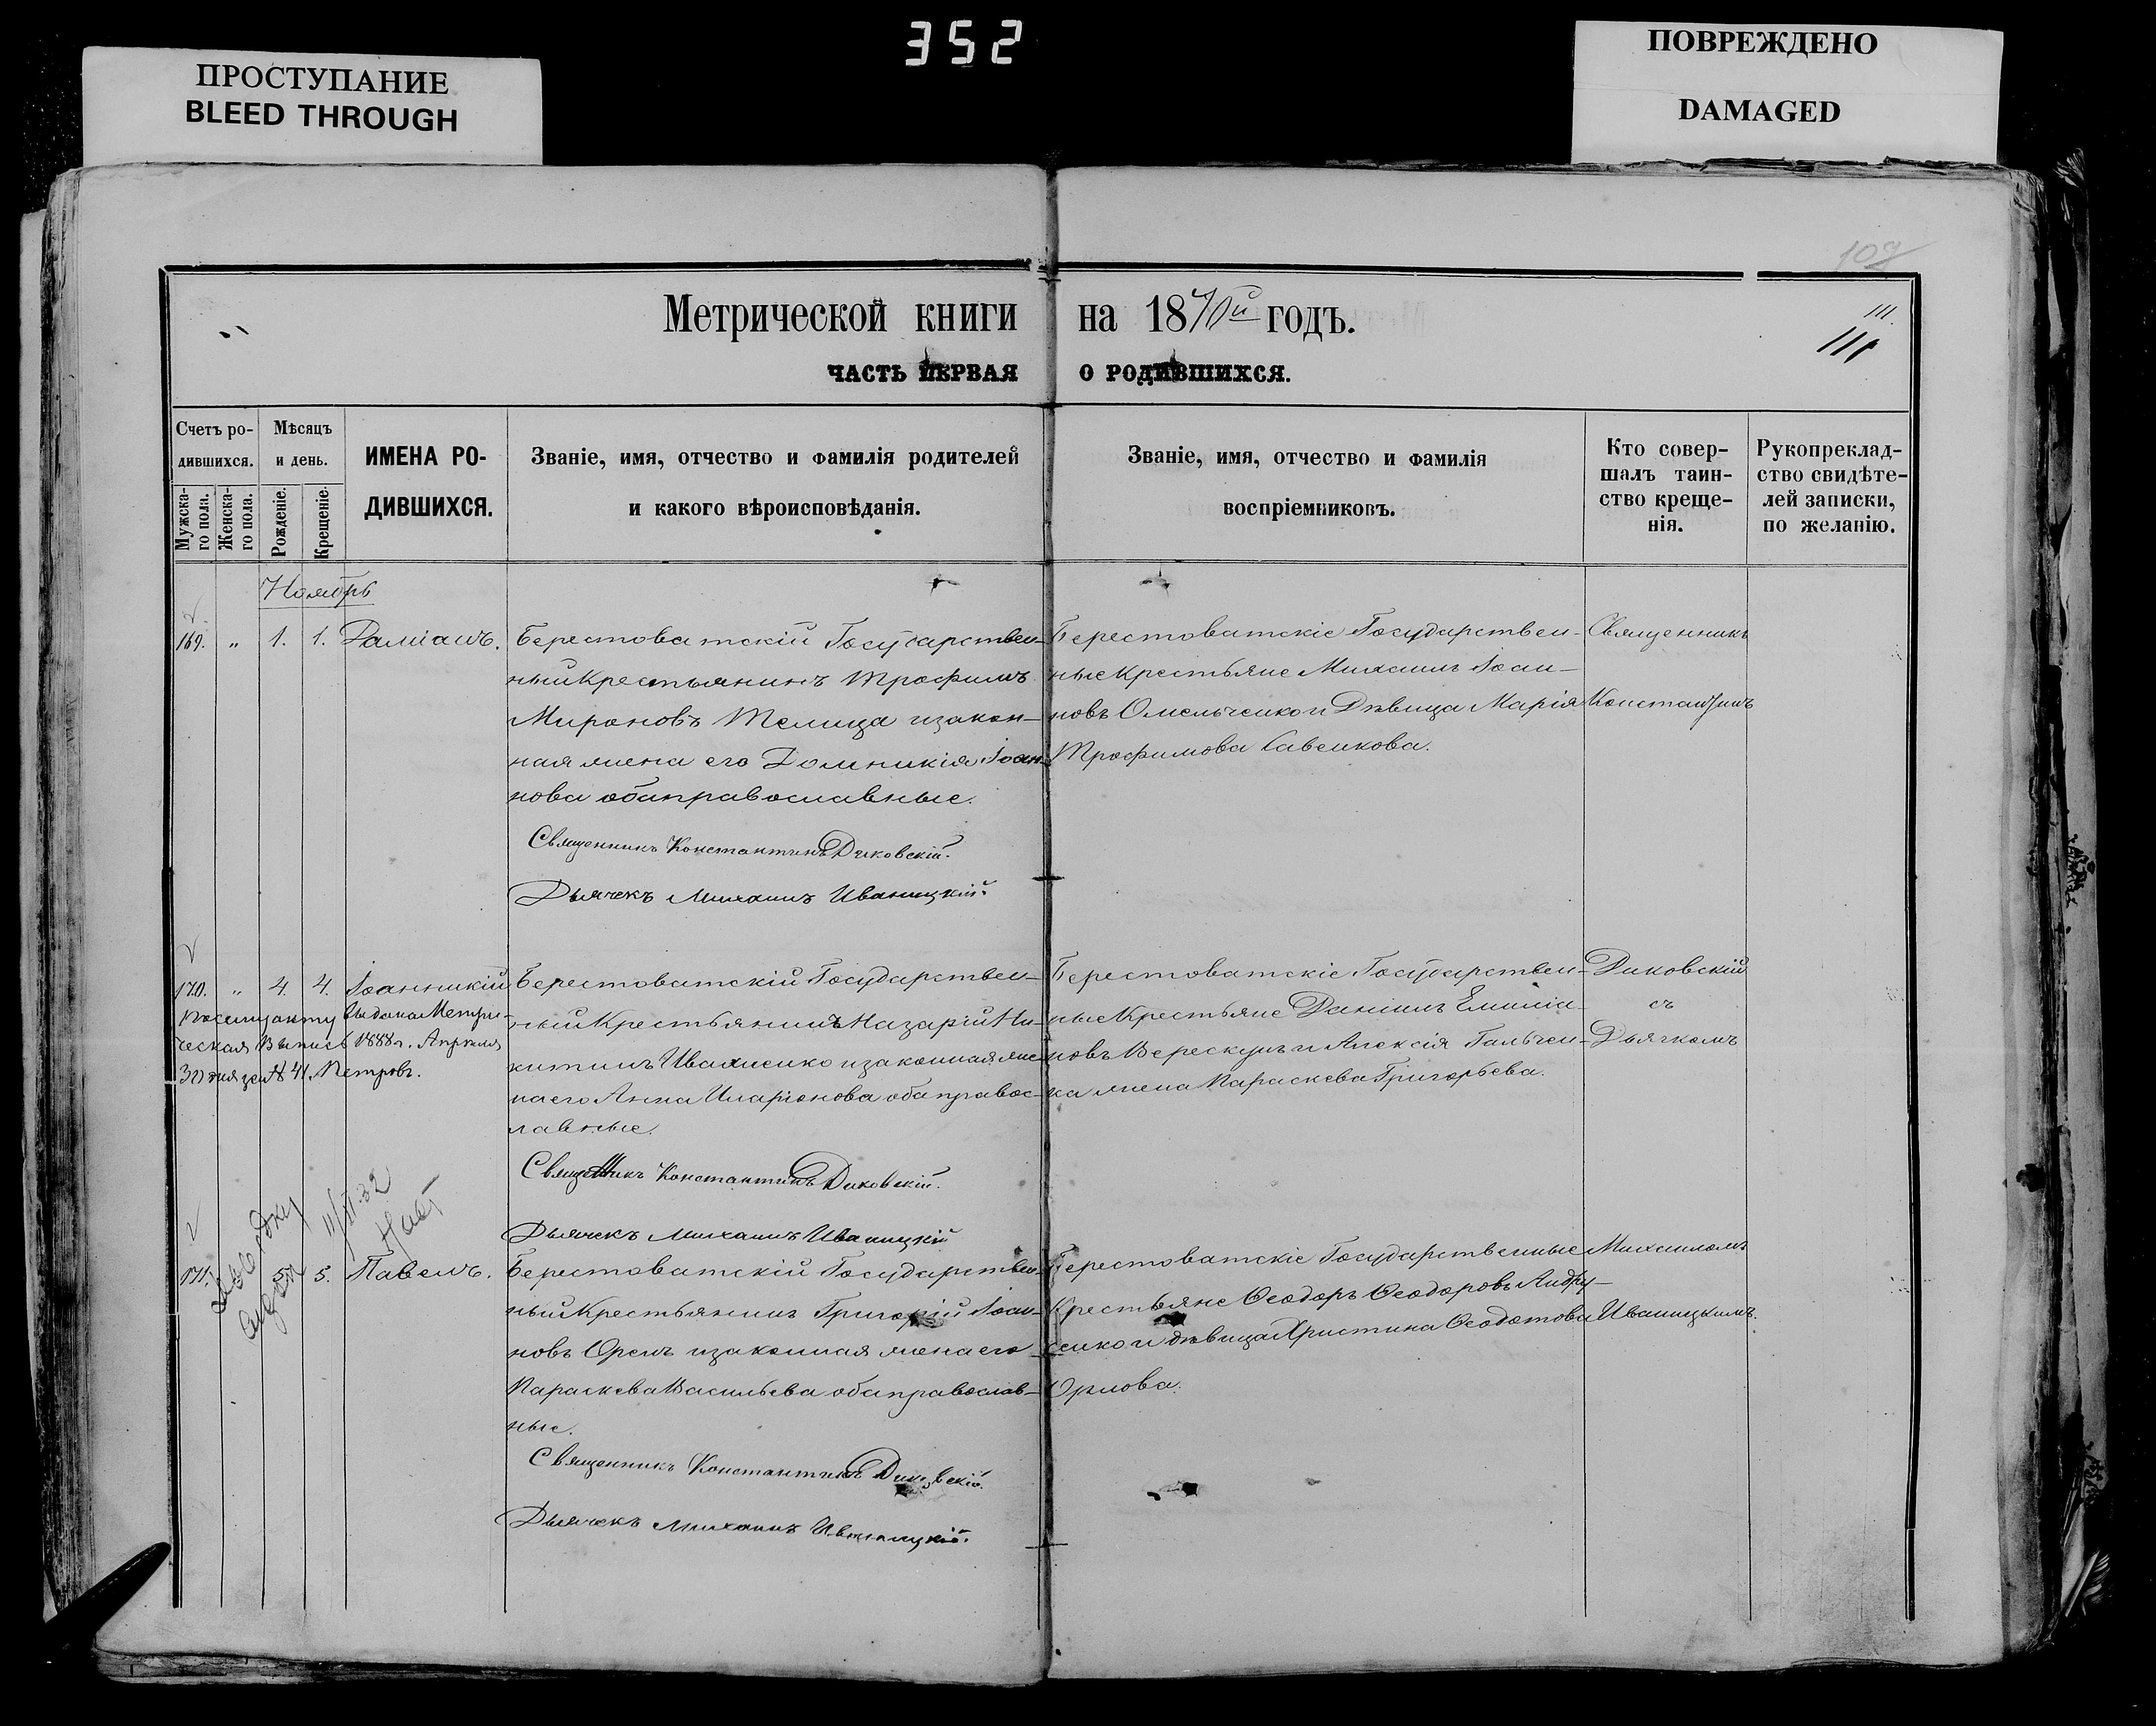 352
ПРОСТУПАНИЕ
BLEED THROUGH
ПОВРЕЖДЕНО
DAMAGED
107
Метрической книги на 1870й годъ.
111.
111
ЧАСТЬ ПЕРВАЯ О РОДИВШИХСЯ.
Счетъ ро-
дившихся.
Мужска-
го пола.
Женска-
го пола.
Мѣсяцъ
и день.
Рожденіе.
Крещеніе.
ИМЕНА РО-
ДИВШИХСЯ.
Званіе, имя, отчество и фамилія родителей
и какого вѣроисповѣданія.
Званіе, имя, отчество и фамилія
воспріемниковъ.
Кто совер-
шалъ таин-
ство креще-
нія.
Рукопреклад-
ство свидѣте-
лей записки,
по желанію.
Ноябрь
169. " 1. 1. Даміанъ.
Берестоватскій Государствен-
ный Крестьянинъ Трофимъ
Мироновъ Телица и закон-
ная жена его Домникія Іоан-
нова оба православные.
Священникъ Константинъ Диковскій.
Дьячекъ Михаилъ Иваницкій.
Берестоватскіе Государствен-
ные Крестьяне Михаилъ Іоан-
новъ Омельченко и Дѣвица Марія
Трофимова Савенкова.
Священникъ
Константинъ
170. " 4. 4. Іоанникій
выдана Метри-
ческая Выпись 1888 г. Апрѣля
30 дня за № 41. Петровъ.
Берестоватскій Государствен-
ный Крестьянинъ Назарій Ни-
китинъ Ивахненко и законная же-
на его Анна Иларіонова оба правос-
лавные.
Священникъ Константинъ Диковскій.
Дьячекъ Михаилъ Иваницкій
Берестоватскіе Государствен-
ные Крестьяне Даніилъ Емиліа-
новъ Верескунъ и Алексія Гальчен-
ка жена Параскева Григорьева.
Диковскій
съ
Дьячкомъ
171. " 5. 5. Павелъ.
Берестоватскій Государствен-
ный Крестьянинъ Григорій Іоан-
новъ Орелъ и законная жена его
Параскева Васильева оба православ-
ные.
Священникъ Константинъ Диковскій.
Дьячекъ Михаилъ Иваницкій.
Берестоватскіе Государственные
Крестьяне Ѳеодоръ Ѳеодоровъ Андру-
сенко и дѣвица Христина Ѳеодотова
Орлова.
Михаиломъ
Иваницкимъ.